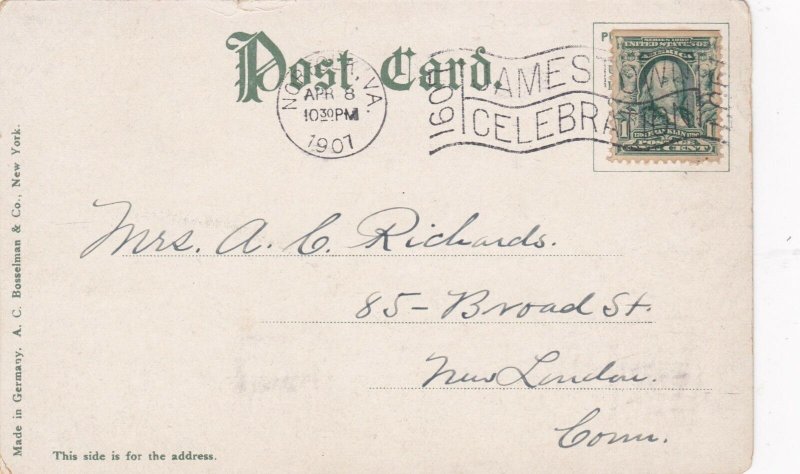 Post Card.
NORFOLK, VA.
APR 8
10 30 PM
1907
1607
JAMESTOWN
CELEBRATION
1907
SERIES 1902
UNITED STATES OF
AMERICA
FRANKLIN
1 POSTAGE 1
CENT
Mrs. A. C. Richards.
85- Broad St.
New London.
Conn.
This side is for the address.
Made in Germany. A. C. Bosselman & Co., New York.